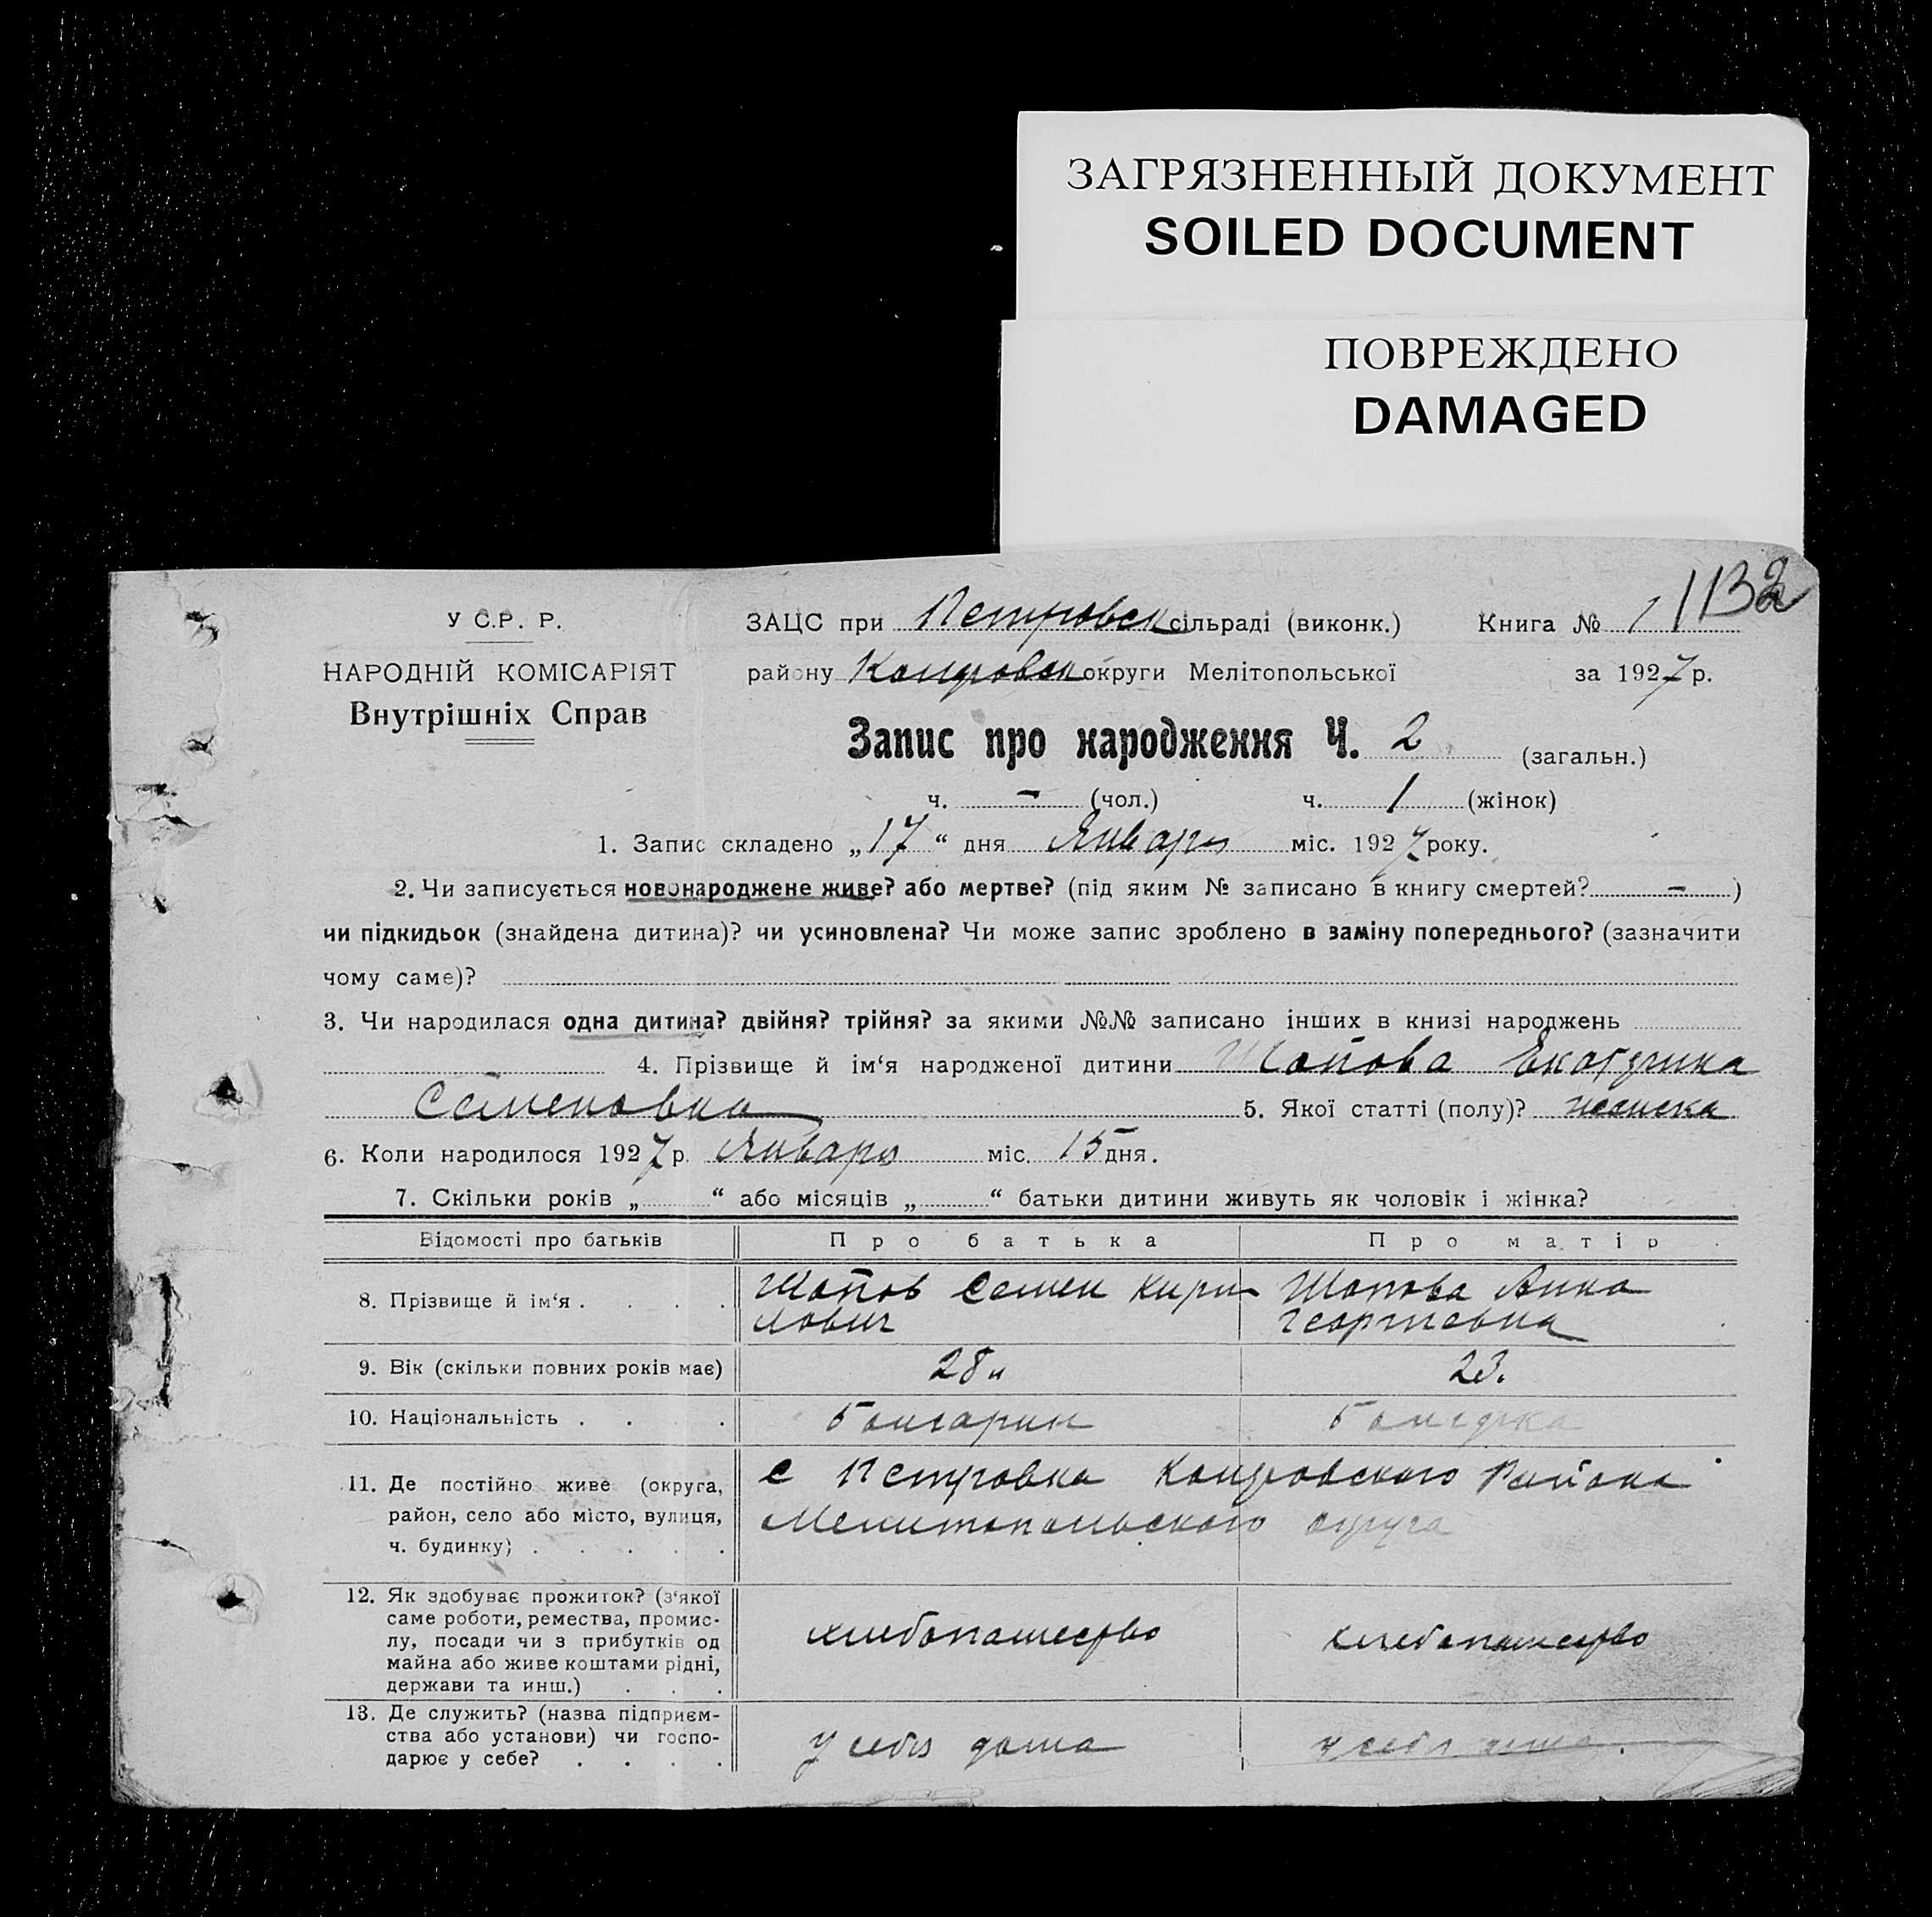 ЗАГРЯЗНЕННЫЙ ДОКУМЕНТ
SOILED DOCUMENT
ПОВРЕЖДЕНО
DAMAGED
1132
У С.Р. Р.
НАРОДНІЙ КОМІСАРІЯТ
Внутрішніх Справ
ЗАЦС при Петровск сільраді (виконк.) Книга № 1
району округи Мелітопольської за 1927 р.
Запис про народження Ч. 2 (загальн.)
ч. – (чол.) ч. 1 (жінок)
1. Запис складено „17“ дня Января міс. 1927 року.
2. Чи записується новонароджене живе? або мертве? (під яким № записано в книгу смертей? – )
чи підкидьок (знайдена дитина)? чи усиновлена? Чи може запис зроблено в заміну попереднього? (зазначити
чому саме)?
3. Чи народилася одна дитина? двійня? трійня? за якими №№ записано інших в книзі народжень
4. Прізвище й ім‘я народженої дитини Шопова Екатрина
Семеновна 5. Якої статті (полу)? женска
6. Коли народилося 1927 р. Января міс. 15 дня.
7. Скільки років „ “ або місяців „ “ батьки дитини живуть як чоловік і жінка?
Відомості про батьків Про батька Про матір
8. Прізвище й ім‘я . . . . Шопов Семен Кири Шопова Анна
лович Георгиевна
9. Вік (скільки повних років має) 28 23.
10. Національність . . . . Болгарин Болгарка
11. Де постійно живе (округа, район, село або місто, вулиця, ч. будинку) . . . . . с Петровка Района
Мелитопольского округа
12. Як здобуває прожиток? (з‘якої
саме роботи, ремества, промис-
лу, посади чи з прибутків од
майна або живе коштами рідні,
держави та инш.) . . . хлебопашество хлебопашество
13. Де служить? (назва підприєм-
ства або установи) чи госпо-
дарює у себе? . . . . у себя дома у себя дома.